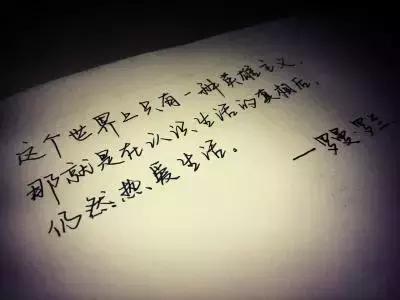 这个世界上只有一种英雄主义,
那就是在认识生活的真相后,
仍然热爱生活。
—罗曼·罗兰